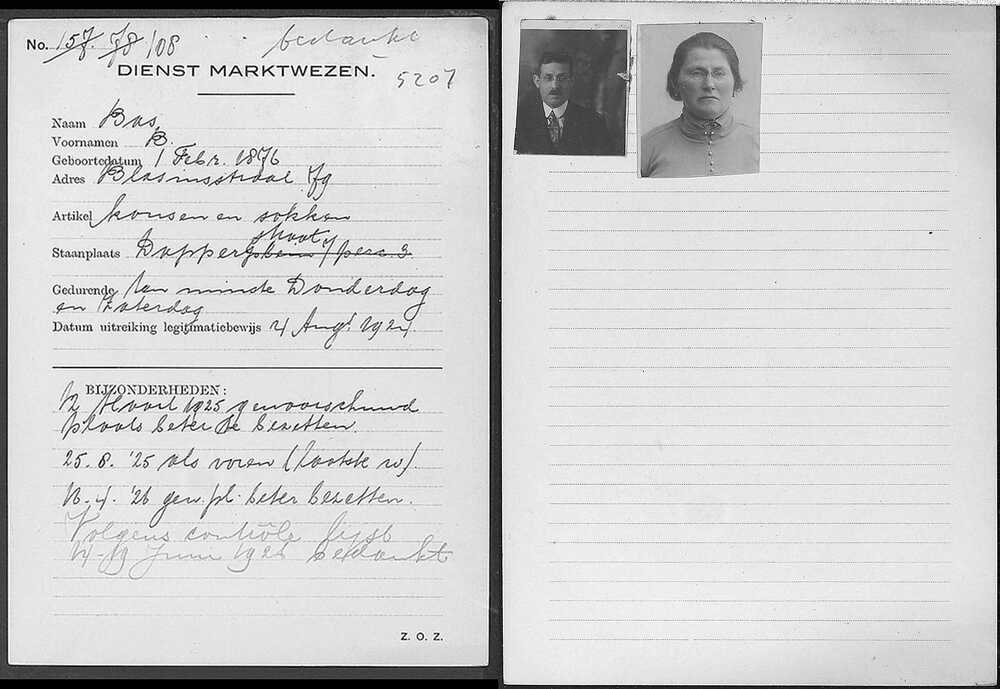 No. 157. 78 /08 bedankt
DIENST MARKTWEZEN.
5207
Naam Bas,
Voornamen B.
Geboortedatum 1 Febr. 1876
Adres Blasiusstraat 79
Artikel kousen en sokken
straat
Staanplaats Dapper 3
Gedurende ten minste Donderdag
en Zaterdag
Datum uitreiking legitimatiebewijs 4 Aug. 1924
BIJZONDERHEDEN:
12 Maart 1925 gewaarschuwd
plaats beter te bezetten.
25.8.'25 als voren (laatste w).
16.4.'26 gew. pl. beter bezetten.
Volgens contrôle lijst
14-19 Juni 1926 bedankt
Z. O. Z.